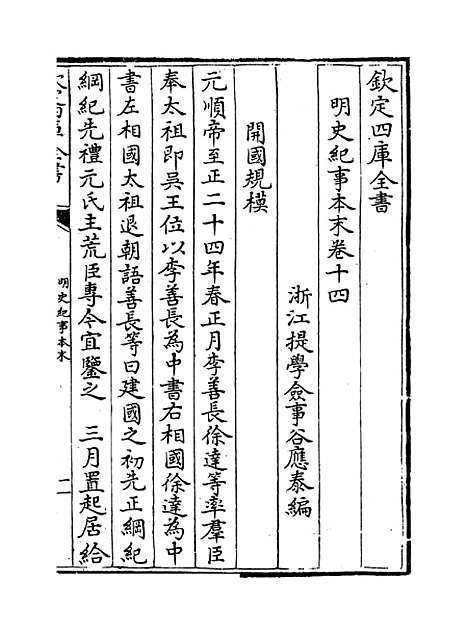 欽定四庫全書
明史紀事本末卷十四
浙江提學僉事谷應泰編
開國規模
元順帝至正二十四年春正月李善長徐達等率羣臣
奉太祖即吳王位以李善長為中書右相國徐達為中
書左相國太祖退朝語善長等曰建國之初先正綱紀
綱紀先禮元氏主荒臣專今宜鑒之 三月置起居給
明史紀事本末